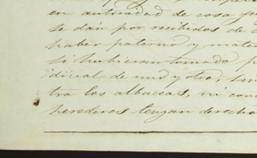 en autoridad de cosa
se dan por recibidos de
haber paterno y mater
si hubieran tomado p
dicial de uno y otro, sin
tra los albaceas, ni con
herederos tengan derecho